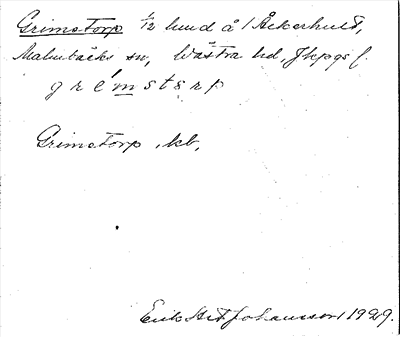 Grimstorp 1/12 hmd å 1 Åkerhult,
Malmbäcks sn, Västra hd, Jkpgs l.
grémstərp
Grimstorp, kb,
Erik Johansson 1929.